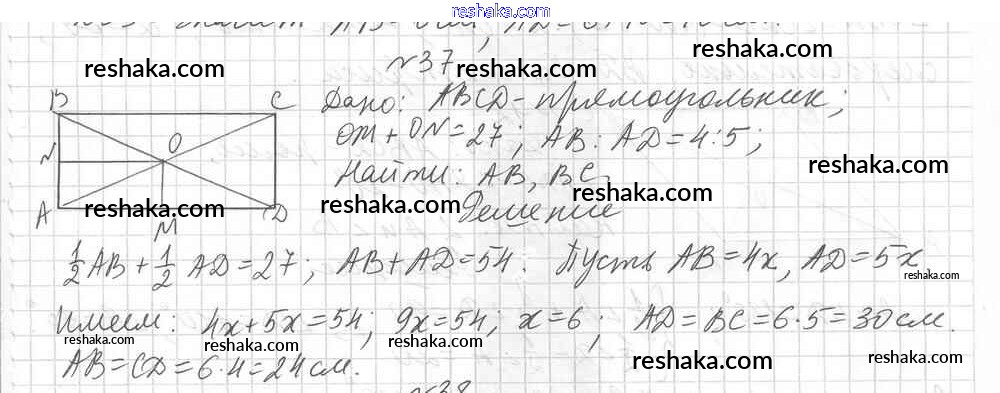 reshaka.com
№37
Дано: ABCD - прямоугольник;
OM + ON = 27; AB : AD = 4:5;
Найти: AB, BC
Решение
B C
N O
A M D
1/2 AB + 1/2 AD = 27; AB + AD = 54. Пусть AB = 4x, AD = 5x
Имеем: 4x + 5x = 54; 9x = 54; x = 6; AD = BC = 6·5 = 30 см.
AB = CD = 6·4 = 24 см.
№38
reshaka.com
reshaka.com
reshaka.com
reshaka.com
reshaka.com
reshaka.com
reshaka.com
reshaka.com
reshaka.com
reshaka.com
reshaka.com
reshaka.com